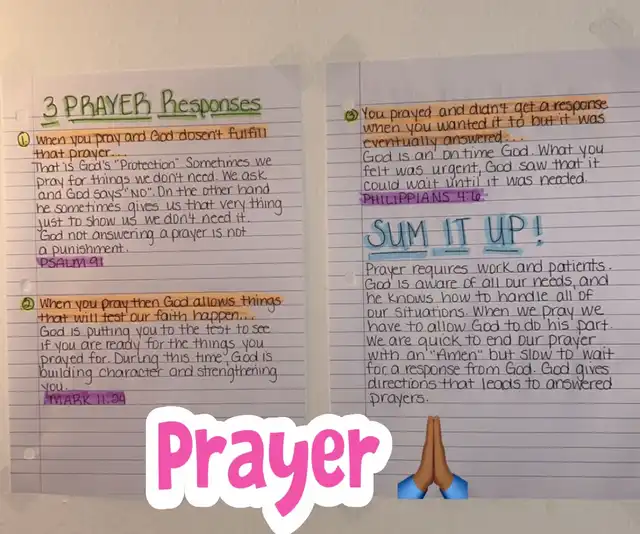 3 PRAYER Responses
① When you pray and God dosen't fulfill
that prayer...
That is God's "Protection" Sometimes we
pray for things we don't need. We ask
and God says "NO". On the other hand
he sometimes gives us that very thing
just to show us we don't need it.
God not answering a prayer is not
a punishment.
PSALM 91
② When you pray then God allows things
that will test our faith happen...
God is putting you to the test to see
if you are ready for the things you
prayed for. During this time, God is
building character and strengthening
you.
MARK 11:24
③ You prayed and didn't get a response
when you wanted it to but it was
eventually answered...
God is an on time God. What you
felt was urgent, God saw that it
could wait until it was needed.
PHILIPPIANS 4:6
SUM IT UP!
Prayer requires work and patients.
God is aware of all our needs, and
he knows how to handle all of
our situations. When we pray we
have to allow God to do his part.
We are quick to end our prayer
with an "Amen" but slow to wait
for a response from God. God gives
directions that leads to answered
prayers.
Prayer